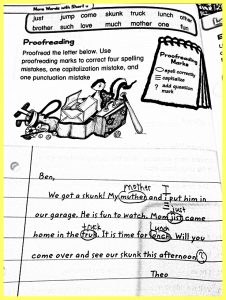 More Words with Short u
just jump come skunk truck lunch other
brother such love much mother one fun
Proofreading
Proofread the letter below. Use
proofreading marks to correct four spelling
mistakes, one capitalization mistake, and
one punctuation mistake
Proofreading
Marks
spell correctly
capitalize
? add question
mark
Ben,
mother I
We got a skunk! My muther and i put him in
our garage. He is fun to watch. Mom just came
truck lunch
home in the truk. It is time for lonch. Will you
come over and see our skunk this afternoon ?
Theo